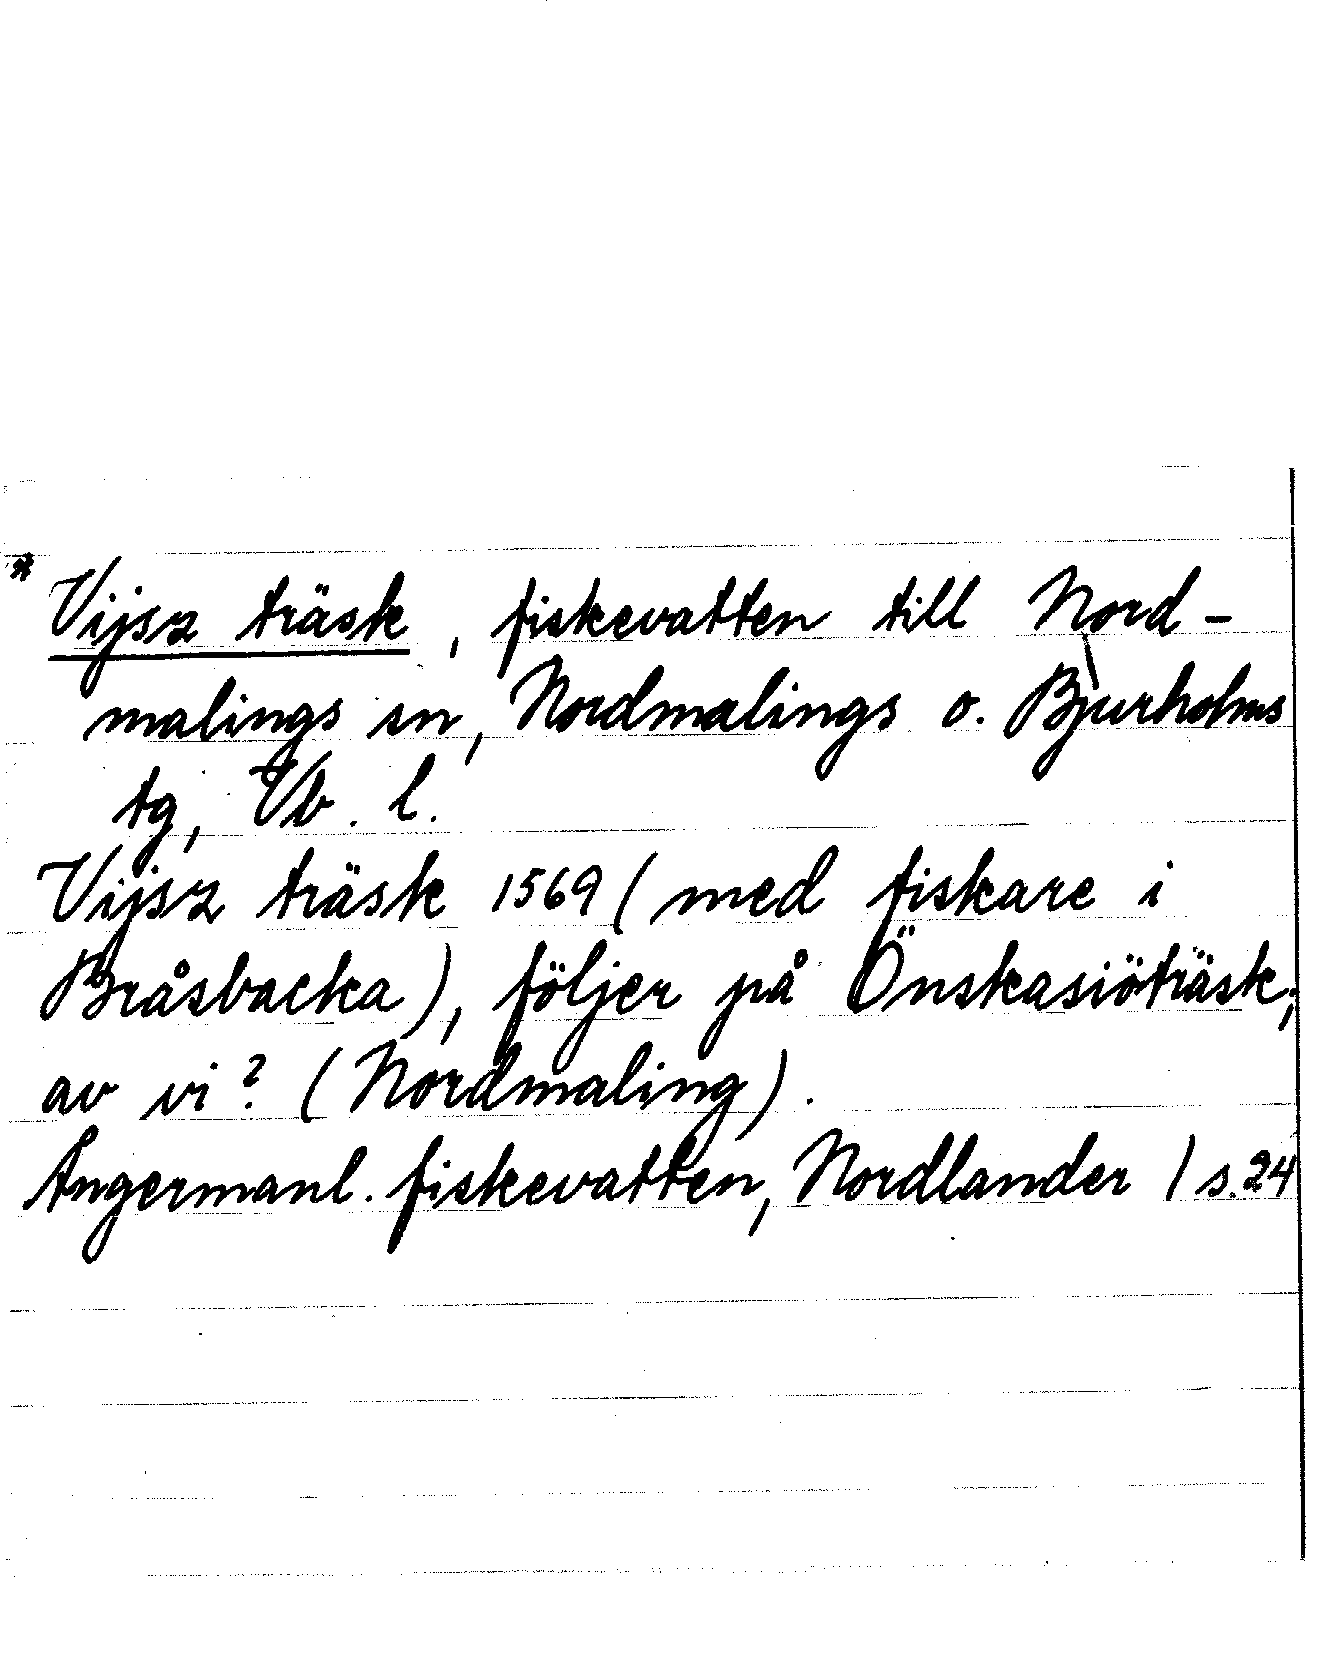 * Vijsz träsk, fiskevatten till Nord-
malings sn, Nordmalings o. Bjurholms
tg, Vb. l.
Vijsz träsk 1569 (med fiskare i
Bråsbacka), följer på Önskasiöträsk;
av vi? (Nordmaling).
Ångermanl. fiskevatten, Nordlander I s. 24